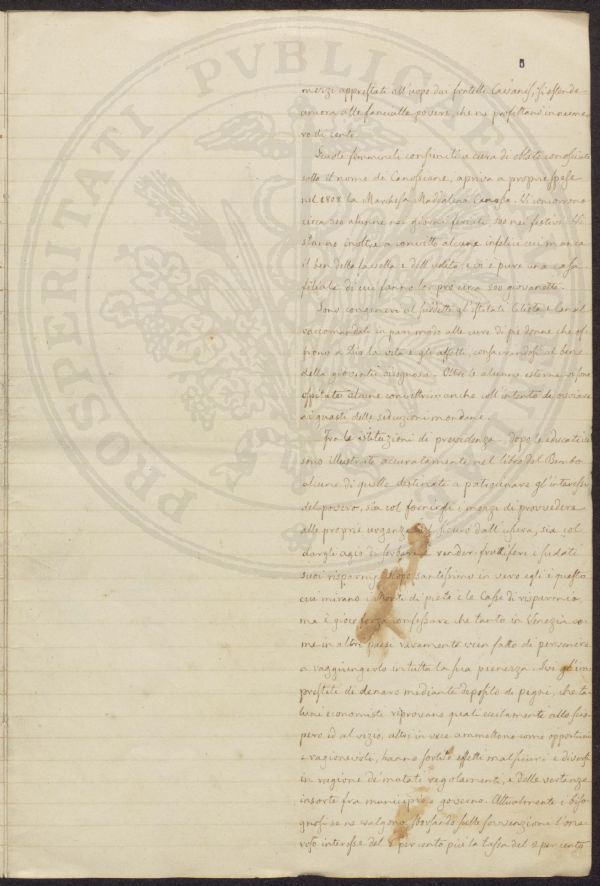 8
merzi apprestati all'uopo dai fratelli Cavanis, si estende
ancora alle fanciulle povere, che ne profittano in nume
ro di cento.
Scuole femminili consimili a cura di oblate conosciute
sotto il nome di Canossiane, apriva a proprie spese
nel 1808 la Marchesa Maddalena Canossa. Vi concorrono
circa 300 alunne nei giorni feriali, 500 nei festivi. Vi
stanno inoltre a convitto alcune infelici cui manca
il ben della favella e dell'udito, e vi è pure una casa
filiale di cui fanno lor pro circa 300 giovanette.
Sono congeneri ai suddetti gl'istituti Ciliota e Canal
raccomandati in pari modo alle cure di pie donne che of
frono a Dio la vita e gli affetti, consacrandosi al bene
della gioventù bisognosa. Oltre le alunne esterne, vi sono
ospitate alcune convittrici anche coll'intento di ovviare
ai guasti delle seduzioni mondane.
Fra le istituzioni di previdenza, dopo le educative
sono illustrate accuratamente nel libro del Bembo
alcune di quelle destinate a patrocinare gl'interessi
del povero, sia col fornirgli i mezzi di provvedere
alle proprie urgenze sicuro dall'usura, sia col
dargli agio di serbare e render fruttiferi i sudati
suoi risparmj. Scopo santissimo in vero egli è questo
cui mirano i Monti di pietà e le Casse di risparmio,
ma è giocoforza confessare che tanto in Venezia co
me in altri paesi raramente vien fatto di pervenire
a raggiungerlo in tutta la sua pienezza. Ivi gl'im
prestiti di denaro mediante deposito di pegni, che ta
luni economisti riprovano quali eccitamenti allo scio
pero ed al vizio, altri in vece ammettono come opportuni
e ragionevoli, hanno sortito effetti mal sicuri e diversi
in ragione de' mutati regolamenti, e delle vertenze
insorte fra municipio e governo. Attualmente i biso
gnosi se ne valgono sborsando sulle sovvenzioni l'one
roso interesse del per cento più la tassa del 2 per cento
PROSPERITATI PVBLICAE